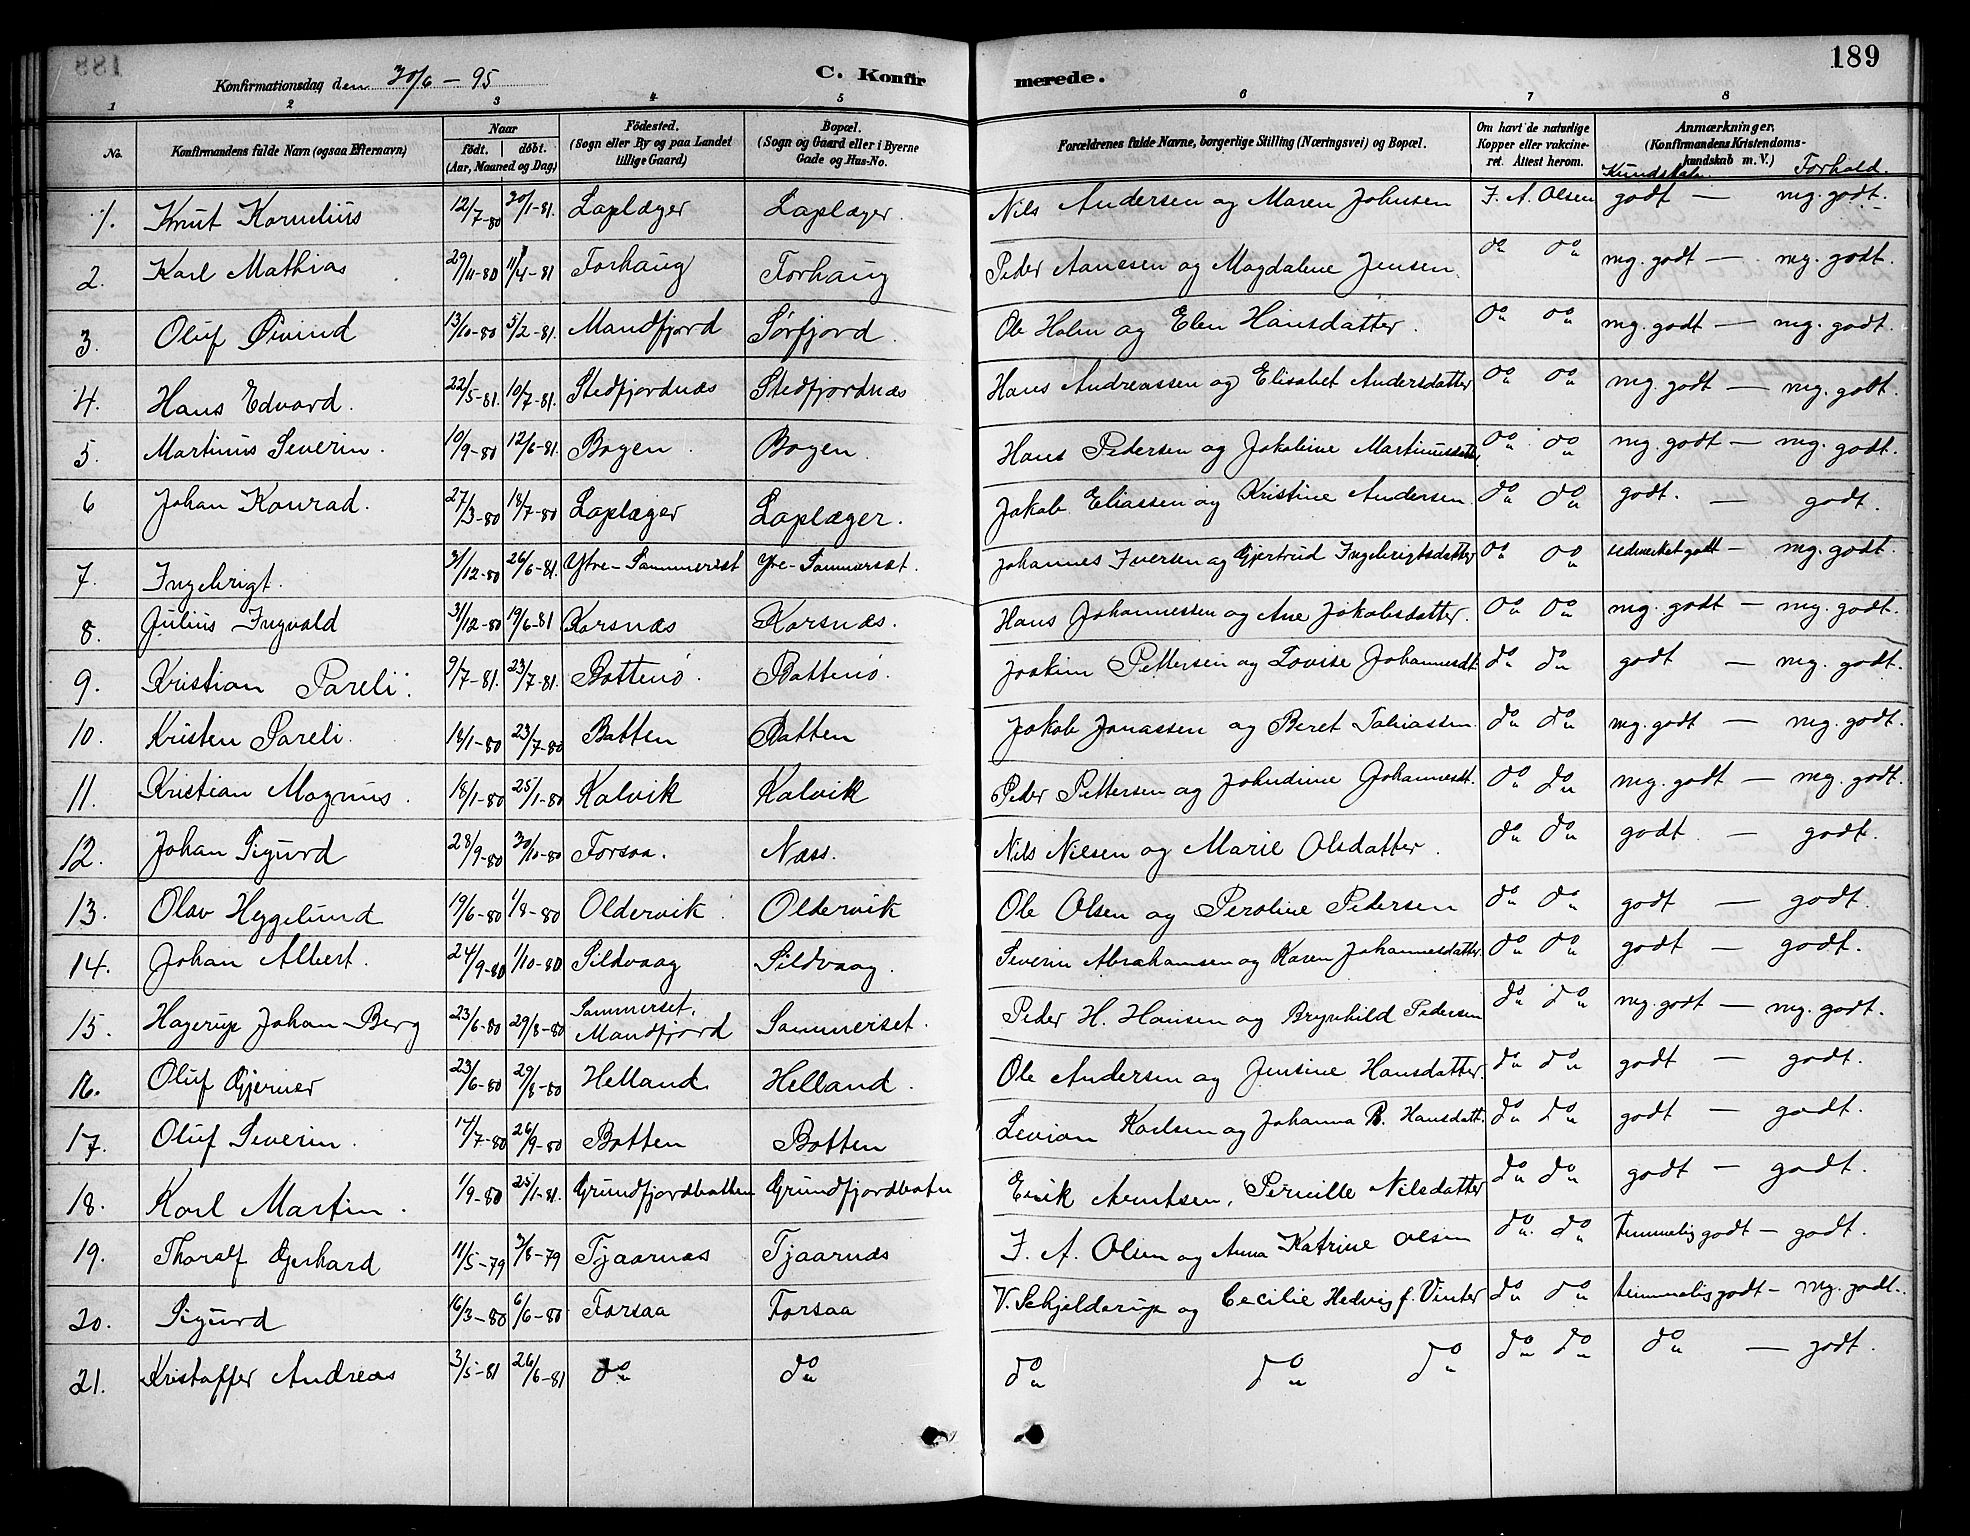 189
Konfirmationsdag den 30/6 - 95 C. Konfir merede.
1 2 3 4 5 6 7 8
No. Konfirmandens fulde Navn (ogsaa Efternavn) Naar födt. döbt. (Aar, Maaned og Dag) Födested. (Sogn eller By og paa Landet tillige Gaard) Bopæl. (Sogn og Gaard eller i Byerne Gade og Hus-No.) Forældrenes fulde Navne, borgerlige Stilling (Næringsvei) og Bopæl. Om havt de naturlige Kopper eller vakcineret. Attest herom. Anmærkninger. (Konfirmandens Kristendomskundskab m. V.) Kundskab. Forhold.
1. Knut Kornelius 12/7-80 30/1-81. Laplæger Laplæger. Nils Andersen og Maren Johnsen J. A. Olsen godt — meg. godt.
2. Karl Mathias 29/11-80 11/4-81 Forhaug Forhaug Peder Aanesen og Magdalene Jensen. do do meg. godt — meg. godt.
3. Oluf Øivind 13/10-80 5/2-81. Mandfjord Sörfjord. Ole Holm og Elen Hansdatter. do do meg. godt — meg. godt.
4. Hans Edvard. 22/5-81. 10/7-81. Stedfjordnæs Stedfjordnæs Hans Andreassen og Elisabet Andersdatter do do meg. godt — meg. godt.
5. Martinus Severin. 10/9-80 12/6-81. Bogen. Bogen. Hans Pedersen og Jakobine Martinusdatt. do do meg. godt — meg. godt.
6 Johan Konrad. 27/3-80 18/7-80 Laplæger Laplæger. Jakob Eliassen og Kristine Andersen. do do godt. — godt.
7. Ingebrigt. 31/12-80 26/6-81. Ytre-Sammerset Ytre-Sammerset. Johannes Iversen og Gjertrud Ingebrigtsdatter do do udmerket godt — meg. godt.
8. Julius Ingvald 31/12-80 19/6-81 Korsnæs Korsnæs. Hans Johannessen og Ane Jakobsdatter. do do meg. godt — meg. godt.
9. Kristian Pareli. 9/7-81. 23/7-81. Bottenö. Bottenö. Joakim Pettersen og Lovise Johannesdt. do do godt — meg. godt.
10. Kristen Pareli. 18/1-80 23/7-80 Botten Botten Jakob Jonassen og Beret Tobiassen. do do meg. godt — meg. godt.
11. Kristian Magnus. 18/1-80 25/1-80 Kalvik Kalvik Peder Pettersen og Johndine Johannesdt. do do meg. godt — meg. godt.
12. Johan Sigurd 28/9-80 30/10-80 Forsaa. Næss. Nils Nilsen og Marie Olsdatter. do do godt. — godt.
13. Olav Heggelund 19/6-80 1/8-80 Oldervik. Oldervik Ole Olsen og Peroline Pedersen do do godt — godt.
14. Johan Albert. 24/9-80 1/10-80 Sildvaag Sildvaag. Severin Abrahamsen og Karen Johannesdatter. do do godt — godt.
15. Hagerup Johan Berg 23/6-80 29/8-80 Sammerset, Mandfjord Sammerset. Peder H. Hansen og Brynhild Pedersen do do meg. godt — meg. godt.
16. Oluf Gjerner 23/6-80 29/8-80 Helland Helland. Ole Andersen og Jensine Hansdatter. do do godt — godt.
17. Oluf Severin. 14/7-80 26/9-80 Botten Botten Levion Karlsen og Johanna B. Hansdatt. do do godt — godt.
18. Karl Martin. 1/9-80 25/1-81. Grundfjordbotten Grundfjordbotn Erik Arntsen, Pernille Nilsdatter do do godt — godt.
19. Thoralf Gerhard 11/5-79 3/8-79 Tjaarnæs Tjaarnæs J. A. Olsen og Anna Katrine Olsen do do temmelig godt — godt.
20. Sigurd 16/3-80 6/6-80 Forsaa Forsaa V. Schjelderup og Cecilie Hedvig f. Vinter do do temmelig godt — meg. godt.
21. Kristoffer Andreas 3/5-81 26/6-81 do do do do do do do do — godt.